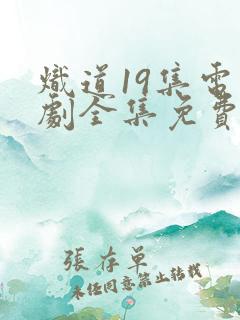 熾道19集電
劇全集免費
張存單
未经同意禁止转载